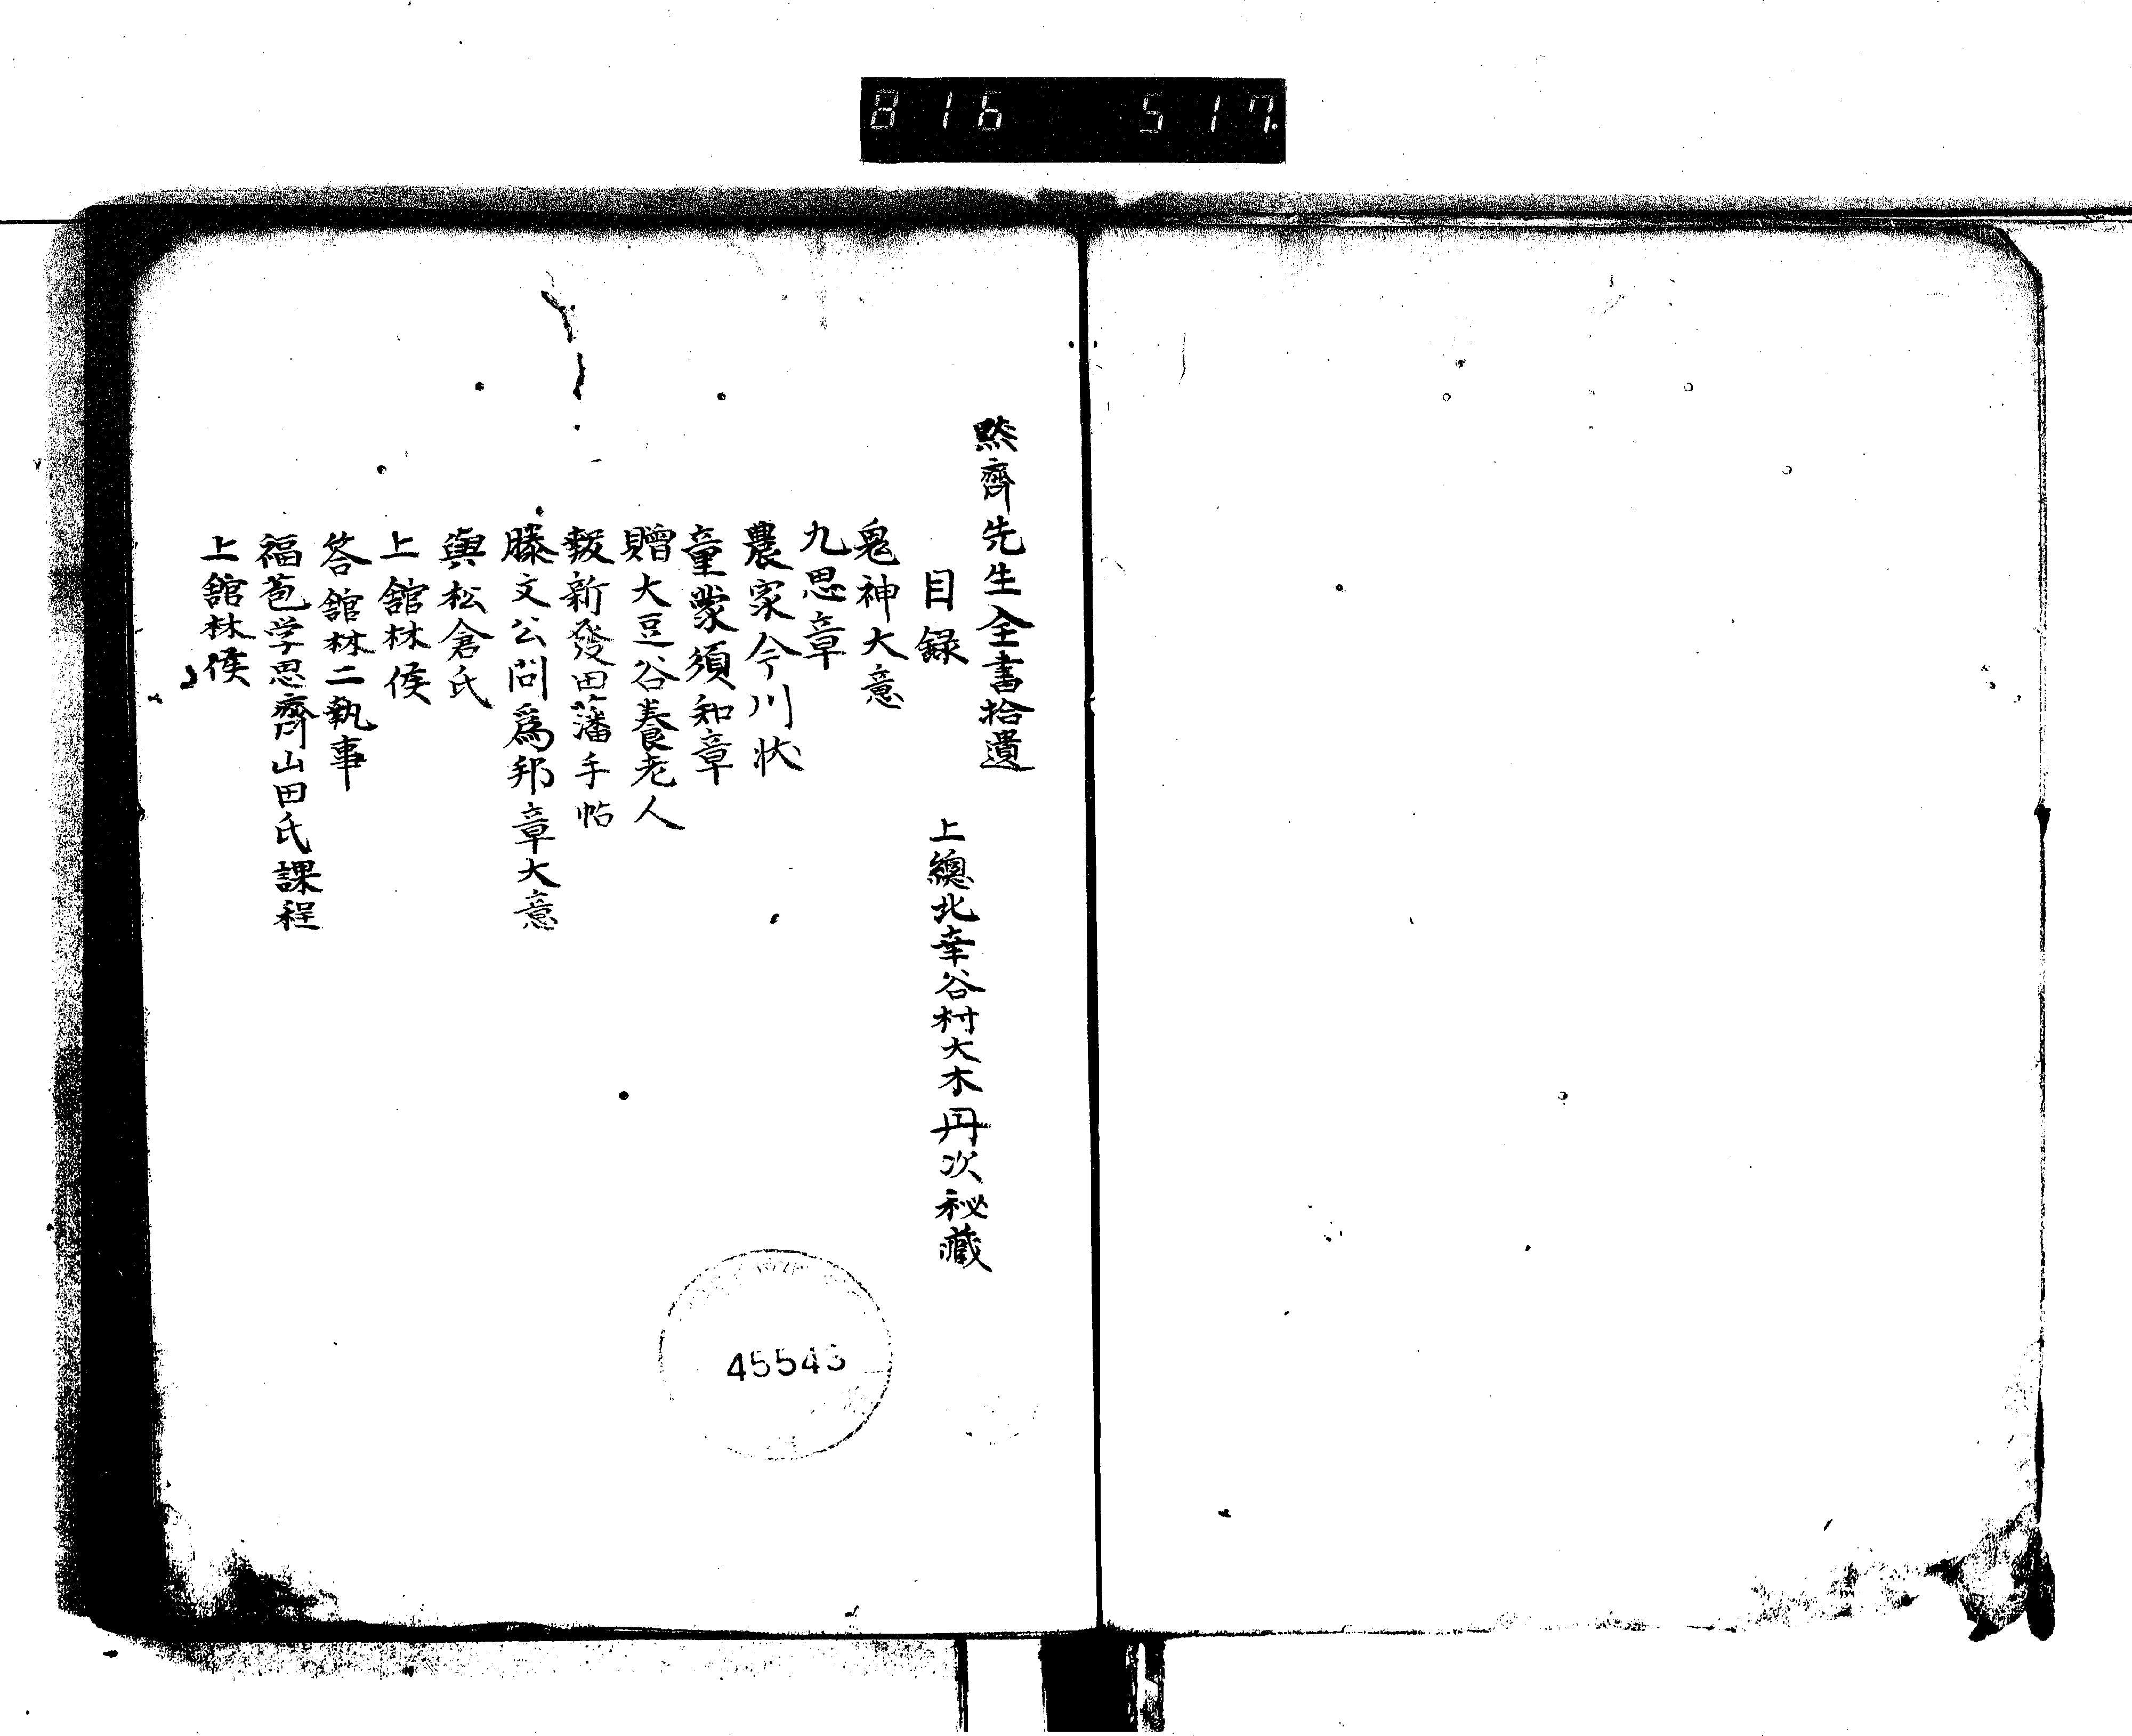 816 517.
黙齋先生全書拾遺
目録
上總北幸谷村大木丹次秘藏
鬼神大意
九思章
農家今川状
童蒙須知章
贈大豆谷養老人
報新發田藩手帖
滕文公問爲邦章大意
與松倉氏
上舘林侯
答舘林二執事
福苞学思齋山田氏課程
上舘林侯